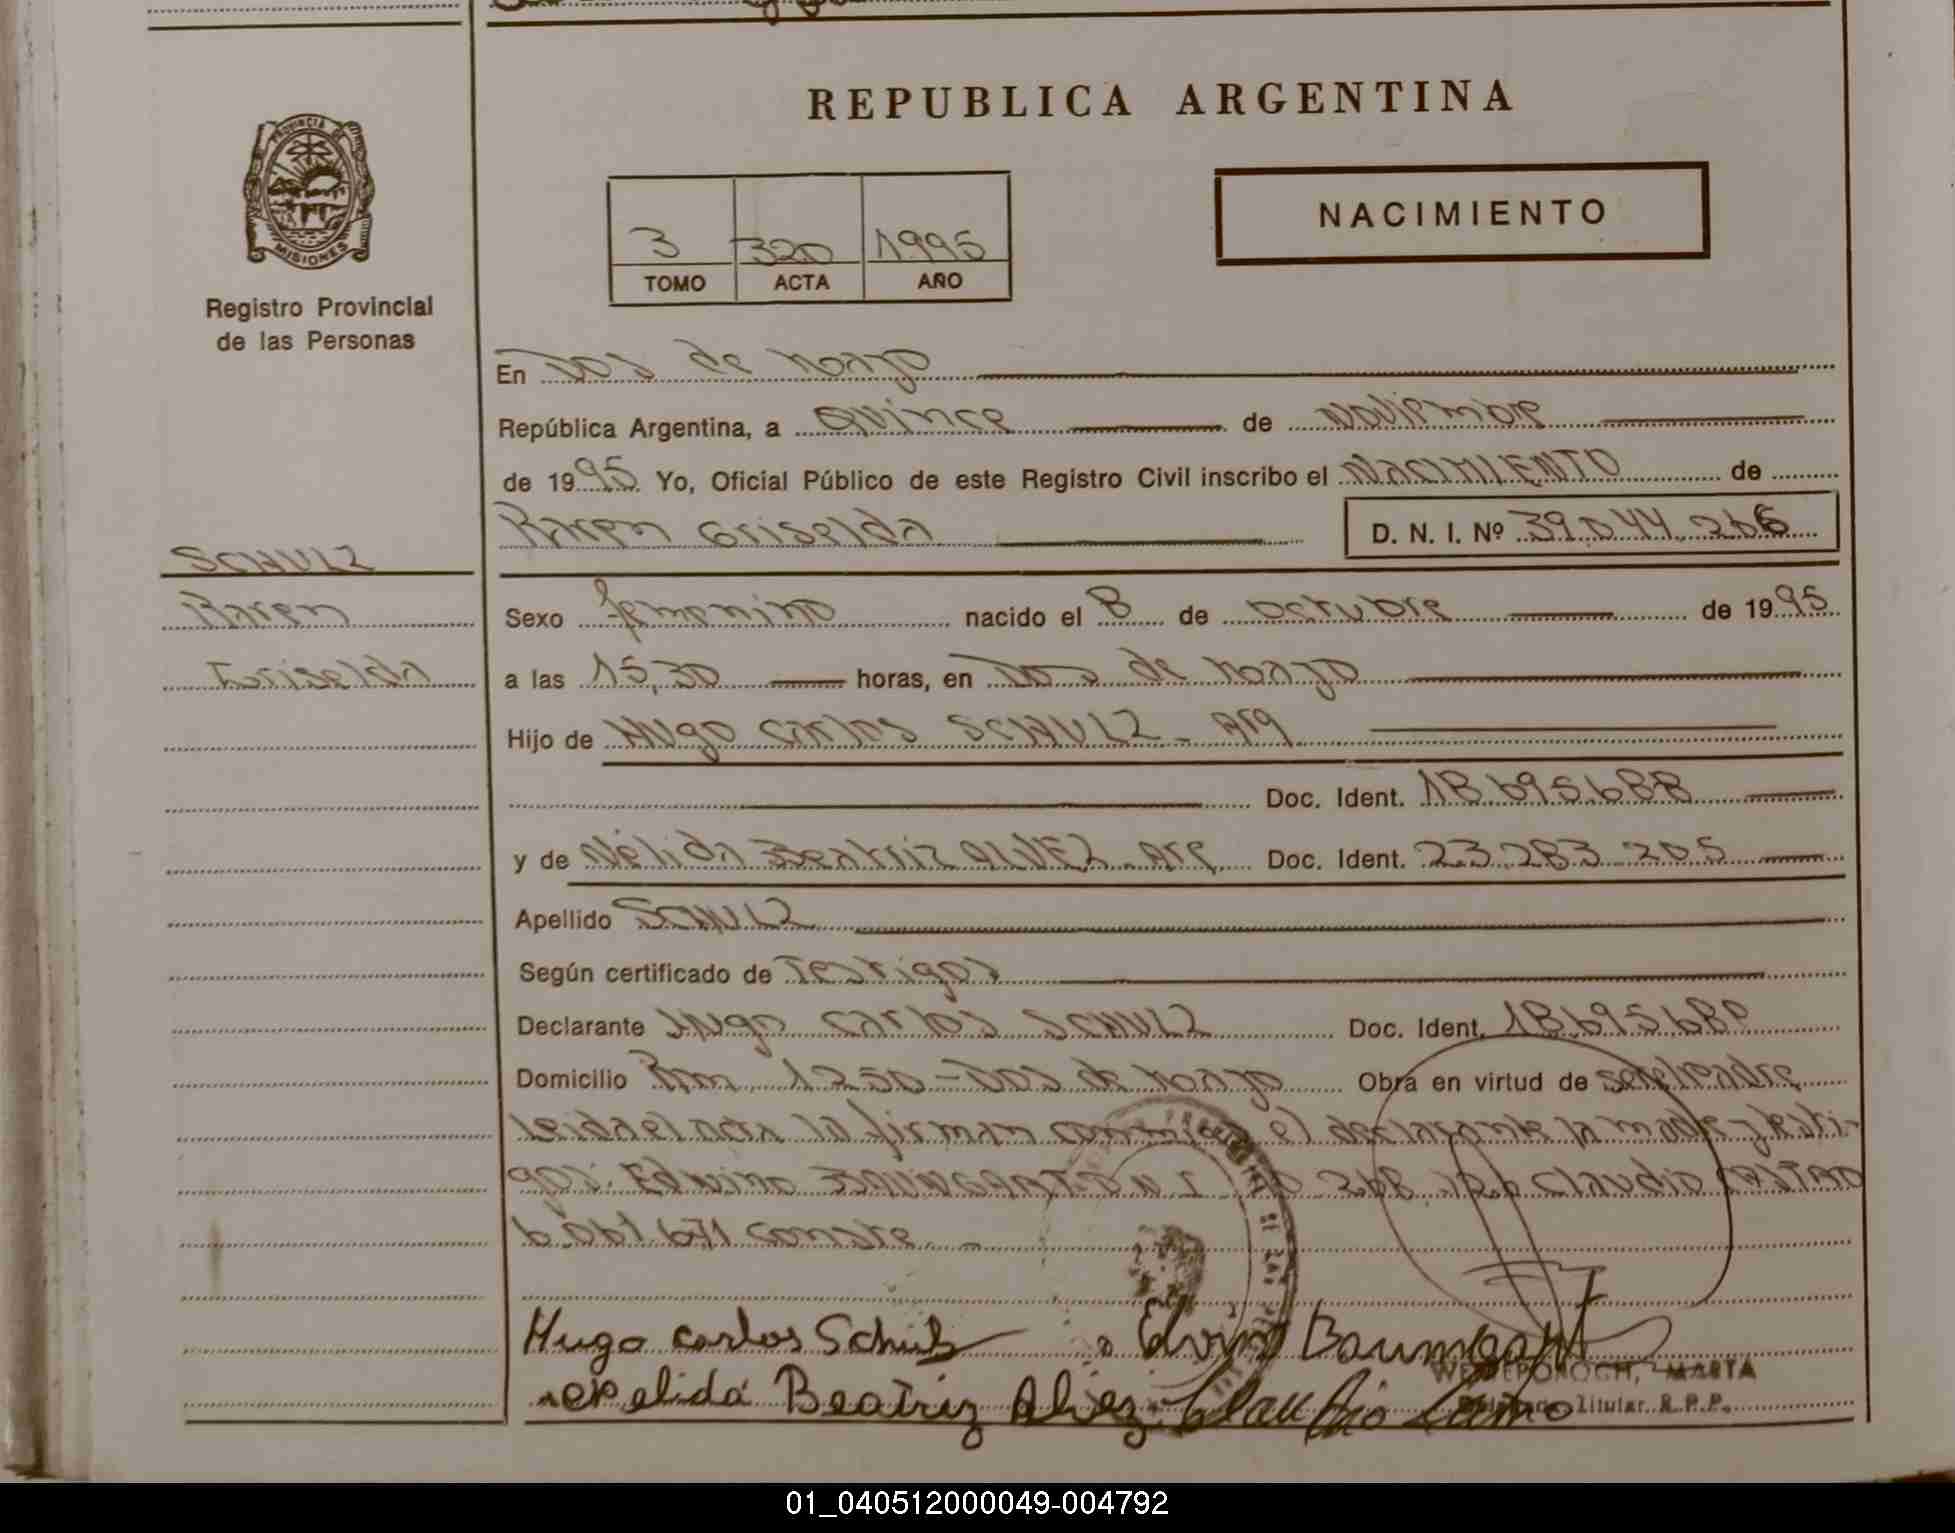 REPUBLICA ARGENTINA
PROVINCIA DE MISIONES
Registro Provincial
de las Personas
3 320 1995
TOMO ACTA AÑO
NACIMIENTO
En Dos de Mayo
República Argentina, a Quince de Noviembre
de 1995 Yo, Oficial Público de este Registro Civil inscribo el NACIMIENTO de
Karen Griselda D. N. I. Nº 39.044.266
SCHULZ
Karen
Griselda
Sexo femenino nacido el 8 de octubre de 1995
a las 15,30 horas, en Dos de Mayo
Hijo de Hugo Carlos SCHULZ - Arg
Doc. Ident. 18.695.688
y de Nélida Beatriz ALVEZ - Arg. Doc. Ident. 23.283.205
Apellido SCHULZ
Según certificado de Testigos
Declarante Hugo Carlos SCHULZ Doc. Ident. 18.695.688
Domicilio Km 1250 - Dos de Mayo Obra en virtud de ser el padre
Leida el acta la firman conmigo el declarante la madre y testi-
gos: Edvino D N I 268 Claudio
6.061.671 conste. -
Hugo Carlos Schulz Edvino Baumgart
Nelida Beatriz Alvez Claudio
MARTA
Titular R.P.P.
01_040512000049-004792